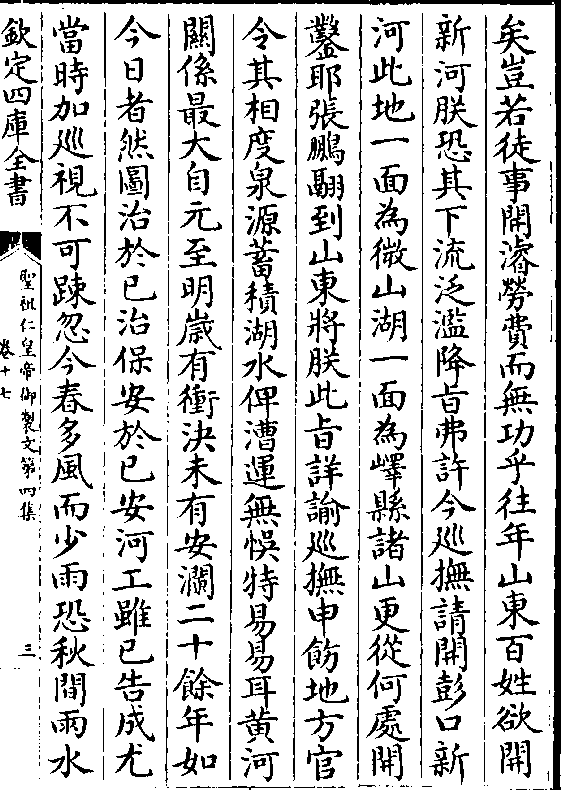 矣豈若徒事開濬勞費而無功乎往年山東百姓欲開
新河朕恐其下流泛濫降旨弗許今巡撫請開彭口新
河此地一面為微山湖一面為嶧縣諸山更從何處開
鑿耶張鵬翮到山東將朕此旨詳諭巡撫申飭地方官
令其相度泉源蓄積湖水俾漕運無悞特易易耳黄河
關係最大自元至明嵗有衝決未有安瀾二十餘年如
今日者然圖治於已治保安於已安河工雖已告成尤
當時加巡視不可踈忽今春多風而少雨恐秋間雨水
欽定四庫全書
聖祖仁皇帝御製文第四集
卷十七
三